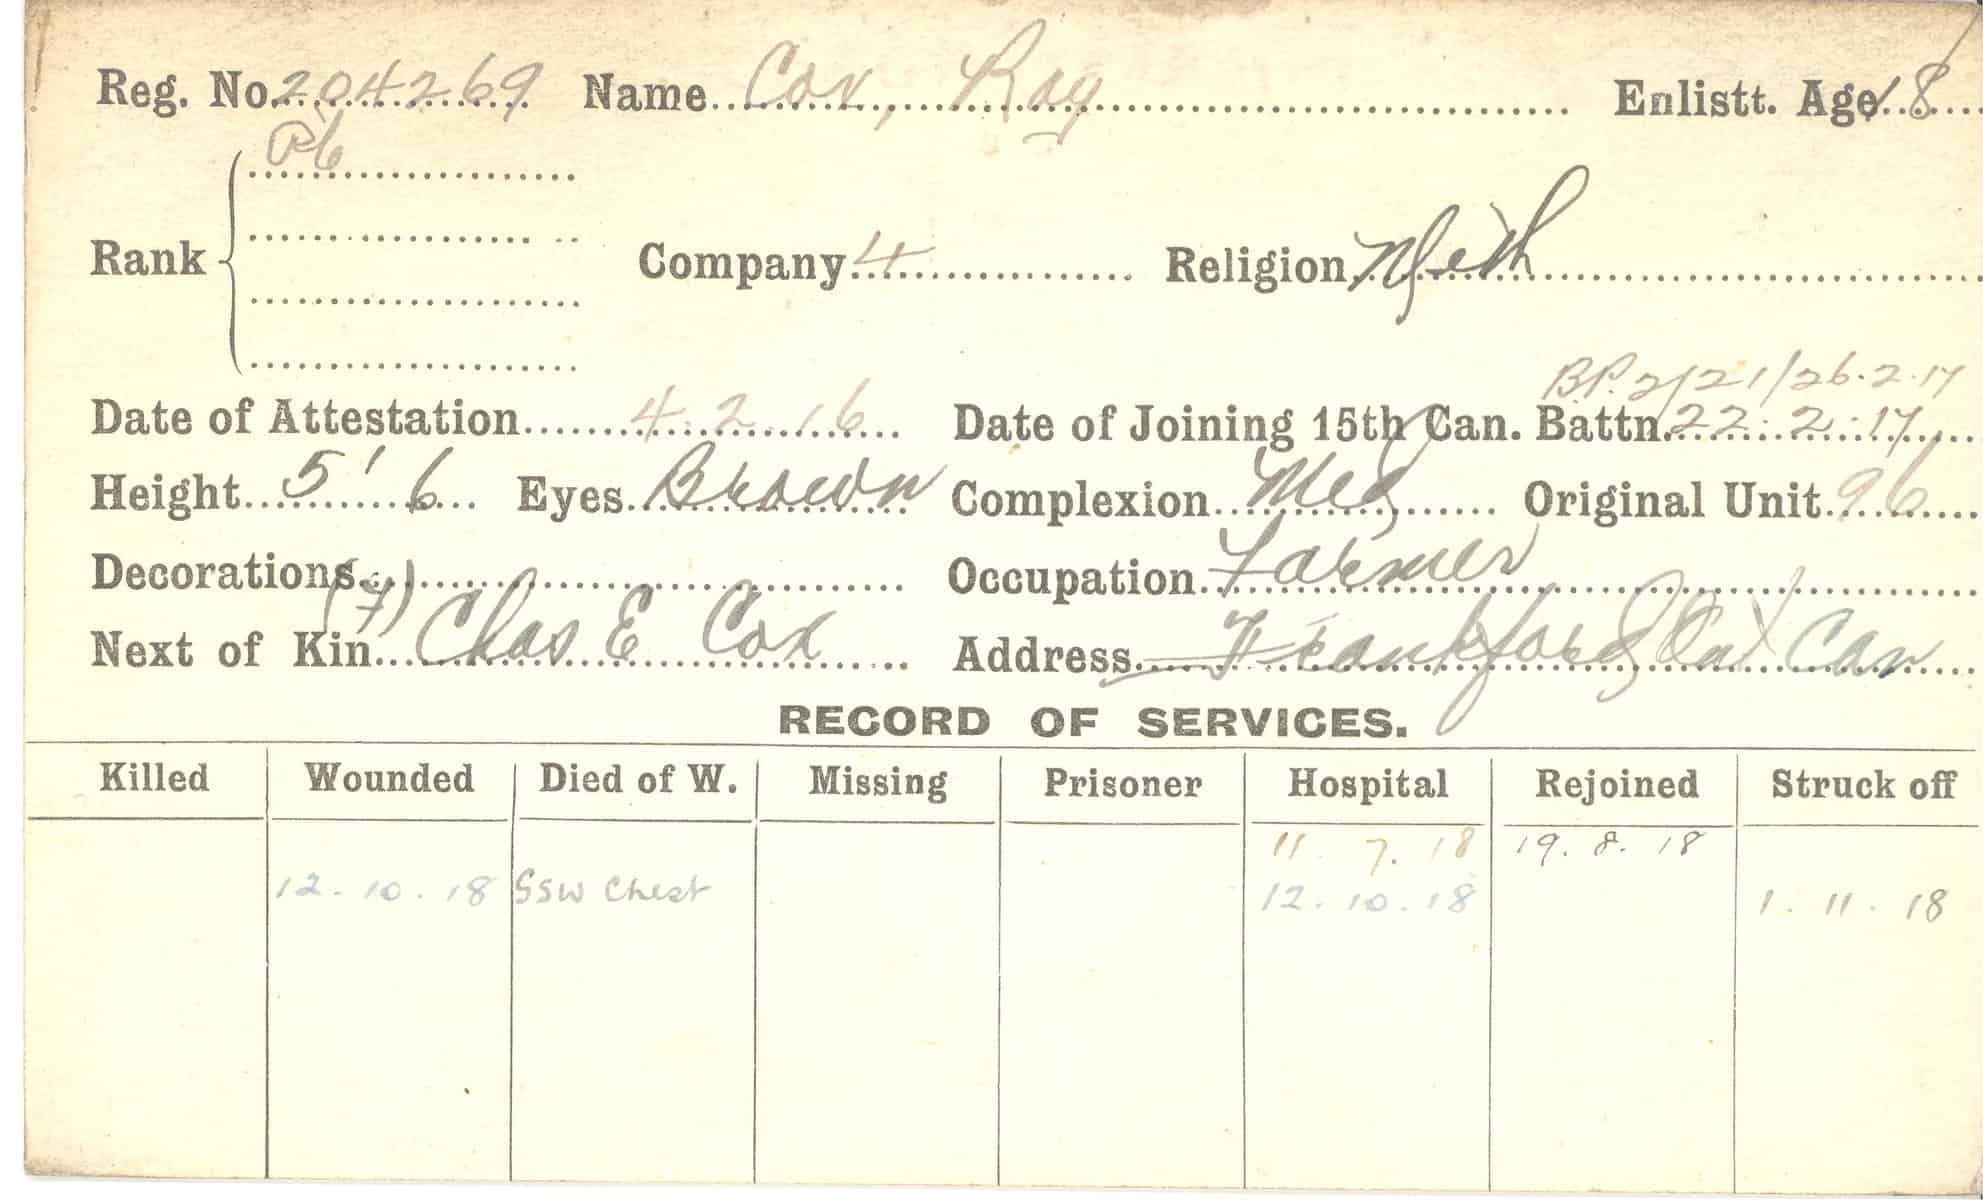 Reg. No. 204269 Name Cox, Roy Enlistt. Age 18
Pte
Rank Company 4 Religion Meth
B.P. 2/21/26.2.17
Date of Attestation 4.2.16 Date of Joining 15th Can. Battn. 22.2.17
Height 5' 6 Eyes Brown Complexion Med Original Unit 96
Decorations Occupation Farmer
Next of Kin (F) Chas E Cox Address Frankford Ont Can
RECORD OF SERVICES.
Killed Wounded Died of W. Missing Prisoner Hospital Rejoined Struck off
11. 7. 18 19. 8. 18
12. 10. 18 SSW Chest 12. 10. 18 1. 11. 18